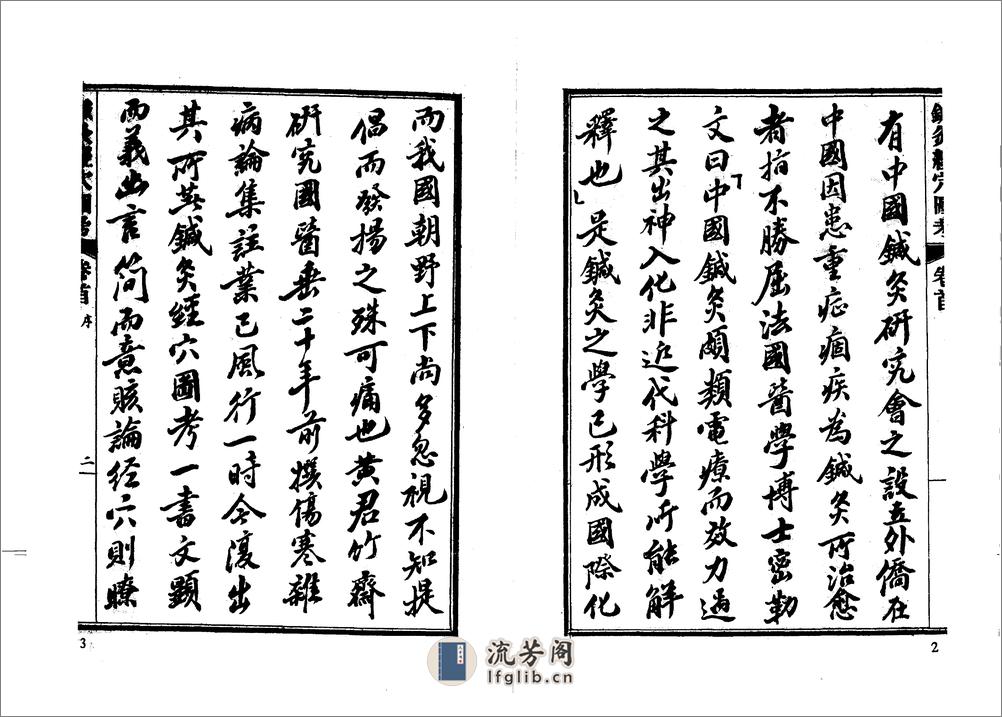 鍼灸經穴圖考
卷首
有中國鍼灸研究會之設立外僑在
中國因患重症痼疾為鍼灸所治愈
者指不勝屈法國醫學博士密勒
文曰「中國鍼灸頗類電療而效力過
之其出神入化非近代科學所能解
釋也」是鍼灸之學已形成國際化
2
而我國朝野上下尚多忽視不知提
倡而發揚之殊可痛也黃君竹齋
研究國醫垂二十年前撰傷寒雜
病論集註業已風行一時今復出
其所著鍼灸經穴圖考一書文顯
而義出言簡而意賅論經穴則瞭
鍼灸經穴圖考
卷首
序
二
3
流芳阁
lfglib.cn